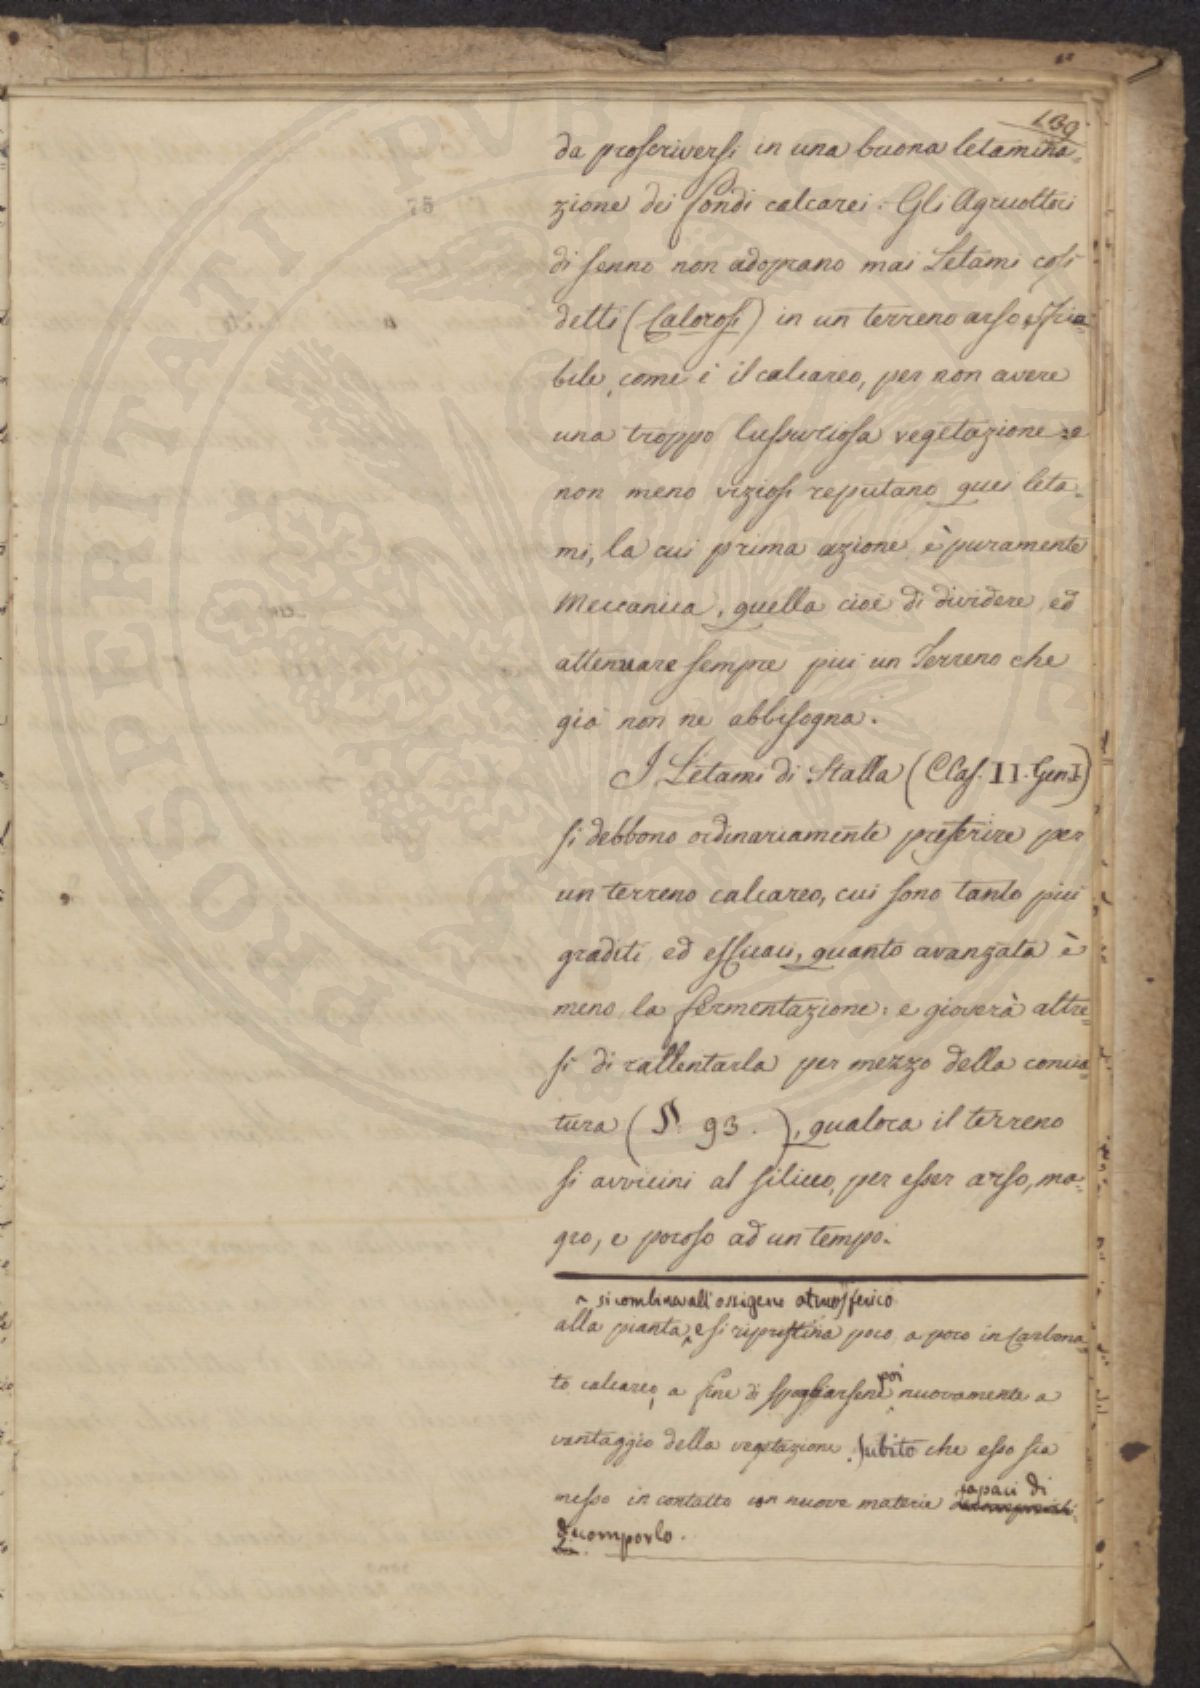 139
da proscriversi in una buona letamina-
zione dei fondi calcarei. Gli Agricoltori
di senno non adoprano mai Letami così
detti (Calorosi) in un terreno arso e fria-
bile, come è il calcareo, per non avere
una troppo lussuriosa vegetazione: e
non meno viziosi reputano quei leta-
mi, la cui prima azione è puramente
Meccanica, quella cioè di dividere, ed
attenuare sempre più un Terreno che
già non ne abbisogna.
I Letami di Stalla (Clas. II. Gen. I)
si debbono ordinariamente preferire per
un terreno calcareo, cui sono tanto più
graditi ed efficaci, quanto avanzata è
meno la fermentazione: e gioverà altre-
sì di rallentarla per mezzo della concia-
tura (§. 93.), qualora il terreno
si avvicini al siliceo, per esser arso, ma-
gro, e poroso ad un tempo.
si combina all'ossigeno atmosferico
alla pianta, e si ripristina poco a poco in Carbona-
to calcareo, a fine di spogliarsene poi nuovamente a
vantaggio della vegetazione subito che esso sia
messo in contatto con nuove materie capaci di
decomporlo.
75
PROSPERITATI PVBLICAE